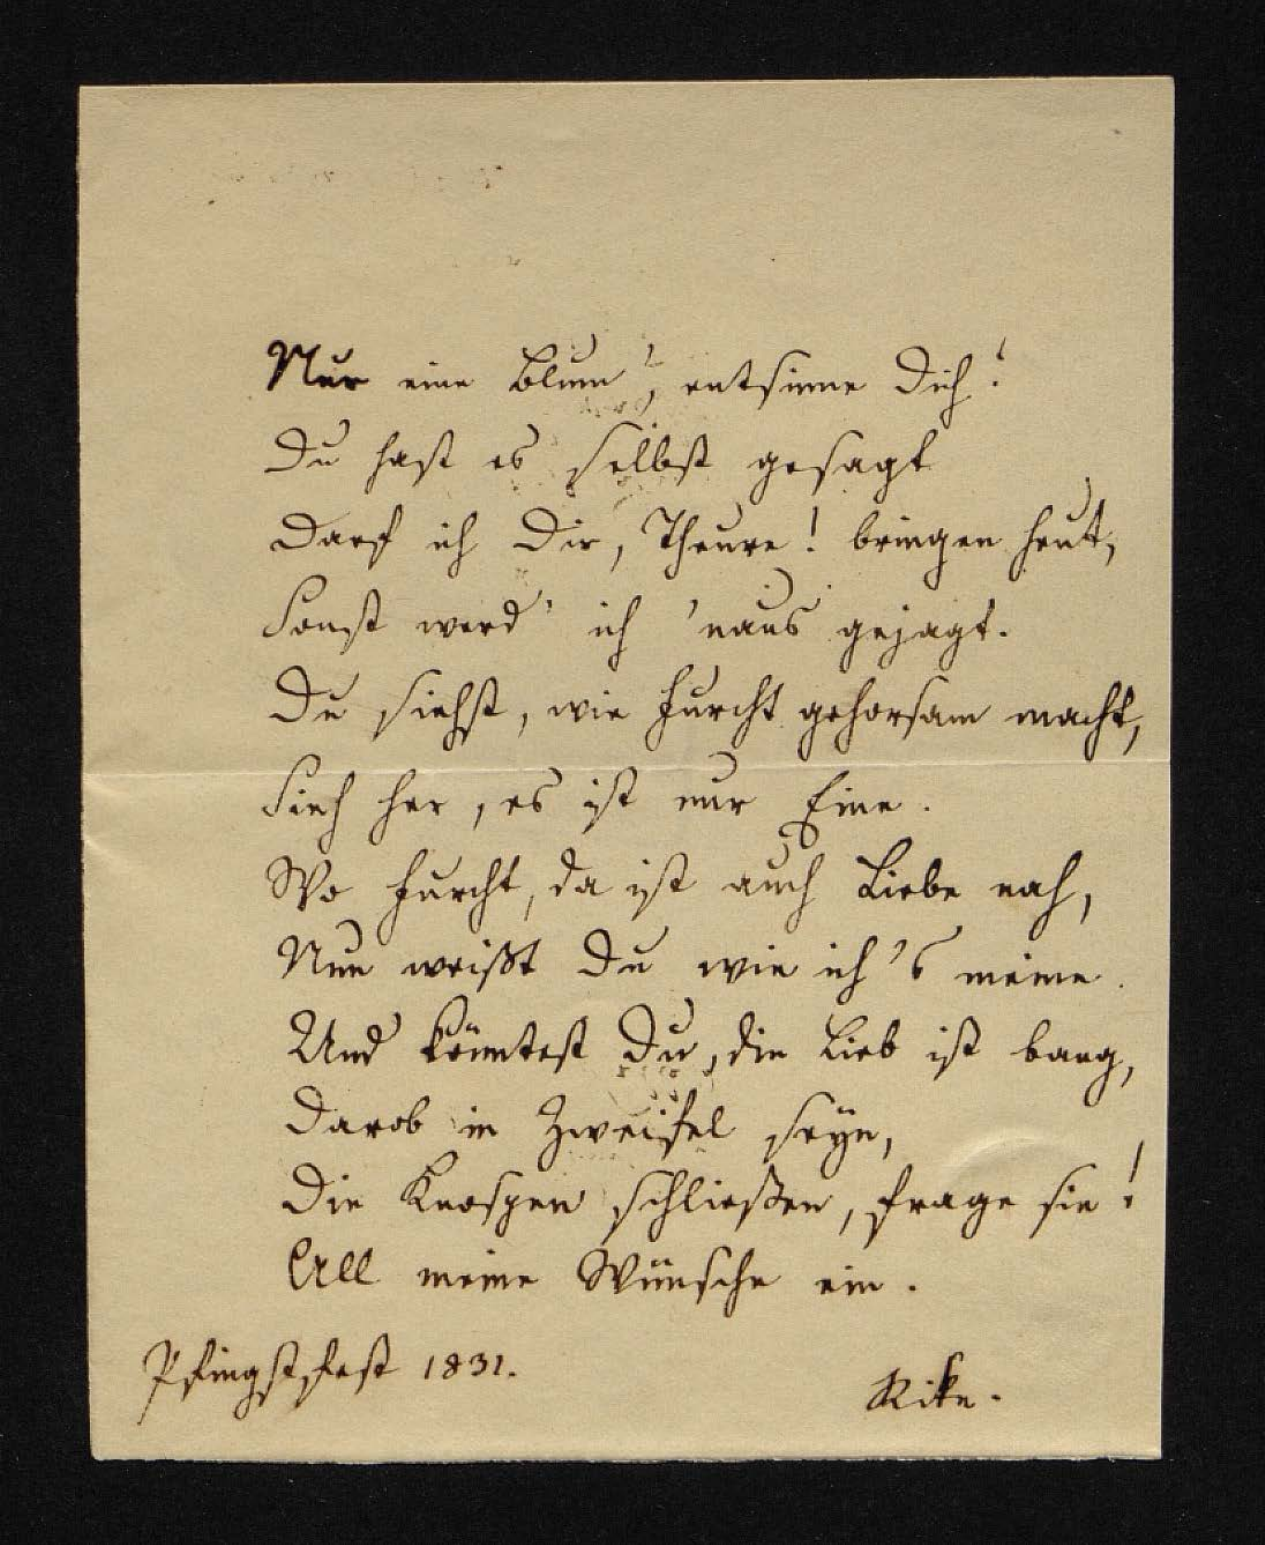 Nur eine Blum', entsinne Dich!
Du hast es selbst gesagt
Darf ich Dir, Theure! bringen heut,
Sonst werd' ich 'naus gejagt.
Du siehst, wie Furcht gehorsam macht,
Sieh her, es ist nur Eine.
Wo Furcht, da ist auch Liebe nah,
Nun weißt Du wie ich's meine.
Und könntest Du, die Lieb ist bang,
Darob in Zweifel seÿn,
Die Knospen schließen, frage sie!
All meine Wünsche ein.
Pfingstfest 1831.
Rike.